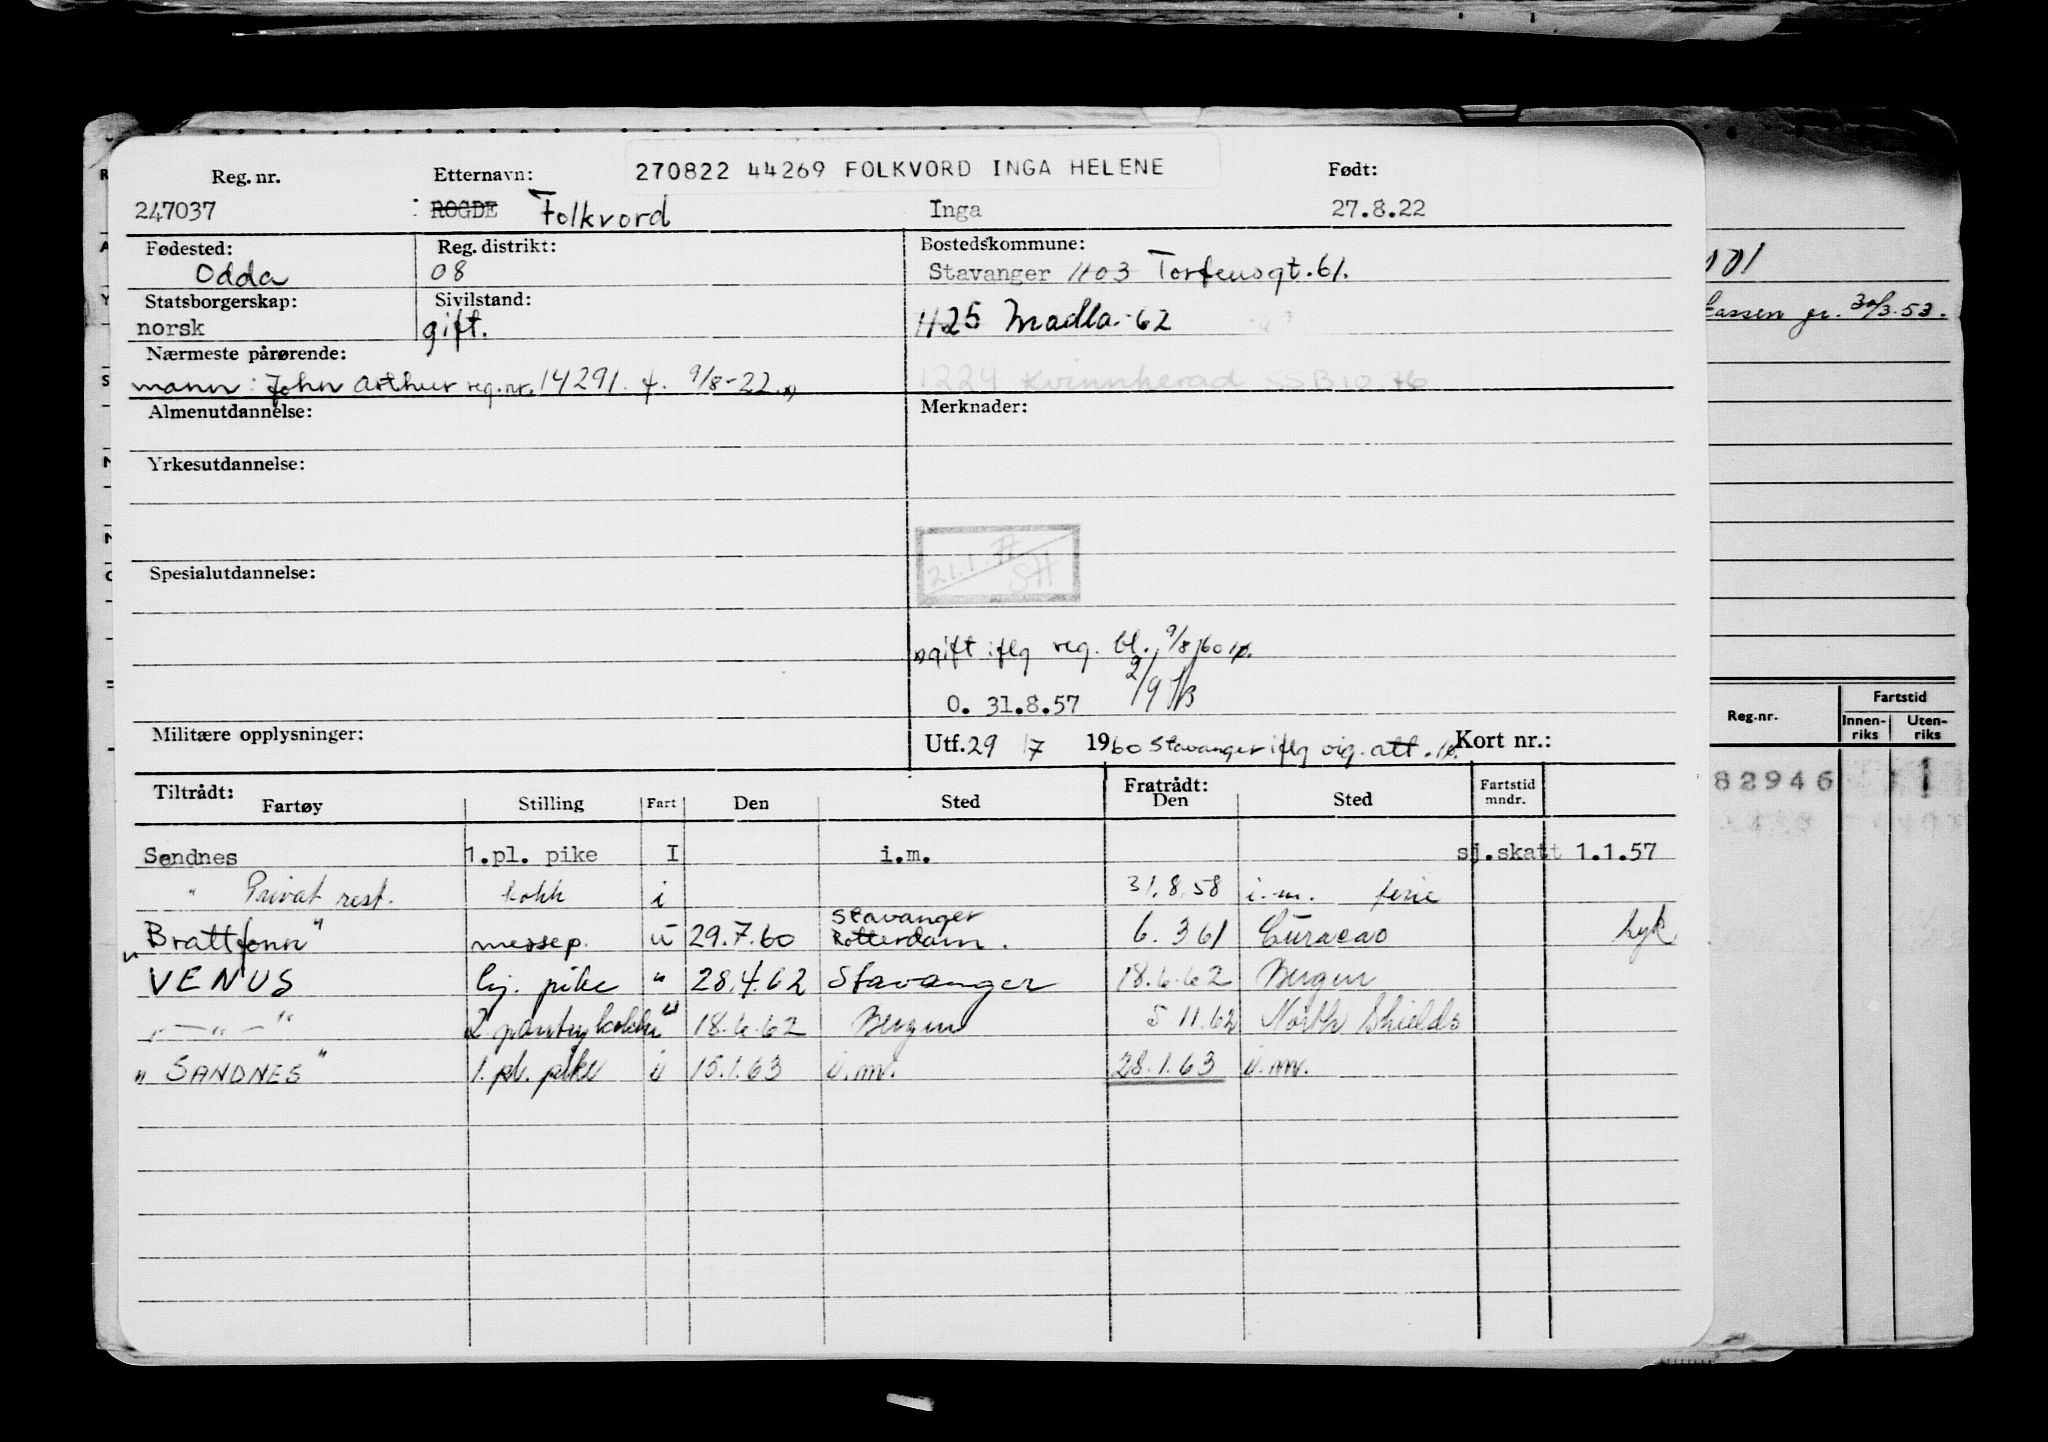 Reg. nr. Etternavn: 270822 44269 FOLKVORD INGA HELENE Født:
247037 : ROGDE Folkvord Inga 27.8.22
Fødested: Reg. distrikt: Bostedskommune:
Odda 08 Stavanger 1103 Torfeusgt. 61.
Statsborgerskap: Sivilstand:
norsk gift. 1125 Madla - 62
Nærmeste pårørende:
mann: John Arthur reg.nr. 14291 f. 9/8-22. x) 1224 Kvinnherad SSB 10 76
Almenutdannelse: Merknader:
Yrkesutdannelse:
21.1.77 SH
Spesialutdannelse:
x) gift iflg reg. bl. 9/8/60
O. 31.8.57 2/9
Militære opplysninger: Utf. 29 / 7 1960 Stavanger iflg vig. att. Kort nr.:
Tiltrådt: Fratrådt:
Fartøy Stilling Fart Den Sted Den Sted Fartstid mndr.
Sandnes 1.pl. pike I i.m. sj.skatt 1.1.57
" Privat rest. kokk i 31.8.58 i.m. ferie
Stavanger
"Brattfonn" messep. u 29.7.60 Rotterdam. 6.3 61 Curacao hyk
VENUS lug. pike " 28.4.62 Stavanger 18.6.62 Bergen
" — " — " 2. pantry kokk u 18.6.62 Bergen 5.11.62 North Shields
" SANDNES" 1. pl. pike i 15.1.63 i.m. 28.1.63 i.m.
101
30/3.53.
Reg.nr. Fartstid
Innen-riks Uten-riks
82946 1